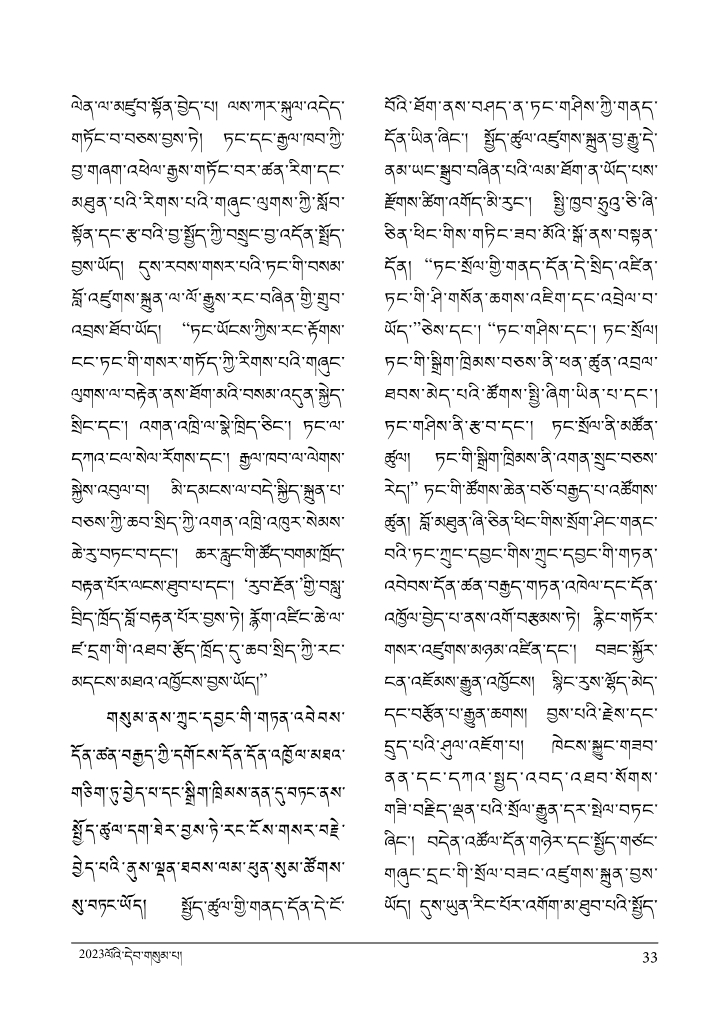 ལེན་ལ་མཛུབ་སྟོན་བྱེད་པ། ལས་ཀར་སྐུལ་འདེད་
གཏོང་བ་བཅས་བྱས་ཏེ། ཏང་དང་རྒྱལ་ཁབ་ཀྱི་
བྱ་གཞག་འཕེལ་རྒྱས་གཏོང་བར་ཚན་རིག་དང་
མཐུན་པའི་རིགས་པའི་གཞུང་ལུགས་ཀྱི་སློབ་
སྟོན་དང་རྩ་བའི་བྱ་སྤྱོད་ཀྱི་བསྲུང་བྱ་འདོན་སྤྲོད་
བྱས་ཡོད། དུས་རབས་གསར་པའི་ཏང་གི་བསམ་
བློ་འཛུགས་སྐྲུན་ལ་ལོ་རྒྱུས་རང་བཞིན་གྱི་གྲུབ་
འབྲས་ཐོབ་ཡོད། “ཏང་ཡོངས་ཀྱིས་རང་རྟོགས་
ངང་ཏང་གི་གསར་གཏོད་ཀྱི་རིགས་པའི་གཞུང་
ལུགས་ལ་བརྟེན་ནས་ཐོག་མའི་བསམ་འདུན་སྐྱེད་
སྲིང་དང་། འགན་འཁྲི་ལ་སྣེ་ཁྲིད་ཅིང་། ཏང་ལ་
དཀའ་ངལ་སེལ་རོགས་དང་། རྒྱལ་ཁབ་ལ་ལེགས་
སྐྱེས་འབུལ་བ། མི་དམངས་ལ་བདེ་སྐྱིད་སྐྲུན་པ་
བཅས་ཀྱི་ཆབ་སྲིད་ཀྱི་འགན་འཁྲི་འཁུར་སེམས་
ཆེ་རུ་བཏང་བ་དང་། ཆར་རླུང་གི་ཚོད་བགམ་ཁྲོད་
བརྟན་པོར་ལངས་ཐུབ་པ་དང་། ‘རུབ་རྔོན་’གྱི་བསླུ་
བྲིད་ཁྲོད་བློ་བརྟན་པོར་བྱས་ཏེ། རྙོག་འཛིང་ཆེ་ལ་
ཛ་དྲག་གི་འཐབ་རྩོད་ཁྲོད་དུ་ཆབ་སྲིད་ཀྱི་རང་
མདངས་མཐའ་འཁྱོངས་བྱས་ཡོད།”
གསུམ་ནས་ཀྲུང་དབྱང་གི་གཏན་འབེབས་
དོན་ཚན་བརྒྱད་ཀྱི་དགོངས་དོན་དོན་འཁྱོལ་མཐའ་
གཅིག་ཏུ་བྱེད་པ་དང་སྒྲིག་ཁྲིམས་ནན་དུ་བཏང་ནས་
སྤྱོད་ཚུལ་དག་ཐེར་བྱས་ཏེ་རང་ངོས་གསར་བརྗེ་
བྱེད་པའི་ནུས་ལྡན་ཐབས་ལམ་ཕུན་སུམ་ཚོགས་
སུ་བཏང་ཡོད། སྤྱོད་ཚུལ་གྱི་གནད་དོན་དེ་ངོ་
བོའི་ཐོག་ནས་བཤད་ན་ཏང་གཤིས་ཀྱི་གནད་
དོན་ཡིན་ཞིང་། སྤྱོད་ཚུལ་འཛུགས་སྐྲུན་བྱ་རྒྱུ་དེ་
ནམ་ཡང་སྒྲུབ་བཞིན་པའི་ལམ་ཐོག་ན་ཡོད་པས་
རྫོགས་ཚིག་འགོད་མི་རུང་། སྤྱི་ཁྱབ་ཧྲུའུ་ཅི་ཞི་
ཅིན་ཕིང་གིས་གཏིང་ཟབ་མོའི་སྒོ་ནས་བསྟན་
དོན། “ཏང་སྲོལ་གྱི་གནད་དོན་དེ་སྲིད་འཛིན་
ཏང་གི་ཤི་གསོན་ཆགས་འཇིག་དང་འབྲེལ་བ་
ཡོད་”ཅེས་དང་། “ཏང་གཤིས་དང་། ཏང་སྲོལ།
ཏང་གི་སྒྲིག་ཁྲིམས་བཅས་ནི་ཕན་ཚུན་འབྲལ་
ཐབས་མེད་པའི་ཚོགས་སྤྱི་ཞིག་ཡིན་པ་དང་།
ཏང་གཤིས་ནི་རྩ་བ་དང་། ཏང་སྲོལ་ནི་མཚོན་
ཚུལ། ཏང་གི་སྒྲིག་ཁྲིམས་ནི་འགན་སྲུང་བཅས་
རེད།” ཏང་གི་ཚོགས་ཆེན་བཅོ་བརྒྱད་པ་འཚོགས་
ཚུན། བློ་མཐུན་ཞི་ཅིན་ཕིང་གིས་སྲོག་ཤིང་གནང་
བའི་ཏང་ཀྲུང་དབྱང་གིས་ཀྲུང་དབྱང་གི་གཏན་
འབེབས་དོན་ཚན་བརྒྱད་གཏན་འཁེལ་དང་དོན་
འཁྱོལ་བྱེད་པ་ནས་འགོ་བརྩམས་ཏེ། རྙིང་གཏོར་
གསར་འཛུགས་མཉམ་འཛིན་དང་། བཟང་སྐྱོར་
ངན་འཇོམས་རྒྱུན་འཁྱོངས། སྙིང་རུས་ལྷོད་མེད་
དང་བརྩོན་པ་རྒྱུན་ཆགས། བྱས་པའི་རྗེས་དང་
དྲུད་པའི་ཤུལ་འཇོག་པ། ཁེངས་སྐྱུང་གཟབ་
ནན་དང་དཀའ་སྤྱད་འབད་འཐབ་སོགས་
གཟི་བརྗིད་ལྡན་པའི་སྲོལ་རྒྱུན་དར་སྤེལ་བཏང་
ཞིང་། བདེན་འཚོལ་དོན་གཉེར་དང་སྤྱོད་གཙང་
གཞུང་དྲང་གི་སྲོལ་བཟང་འཛུགས་སྐྲུན་བྱས་
ཡོད། དུས་ཡུན་རིང་པོར་འགོག་མ་ཐུབ་པའི་སྤྱོད་
2023ལོའི་དེབ་གསུམ་པ།
33